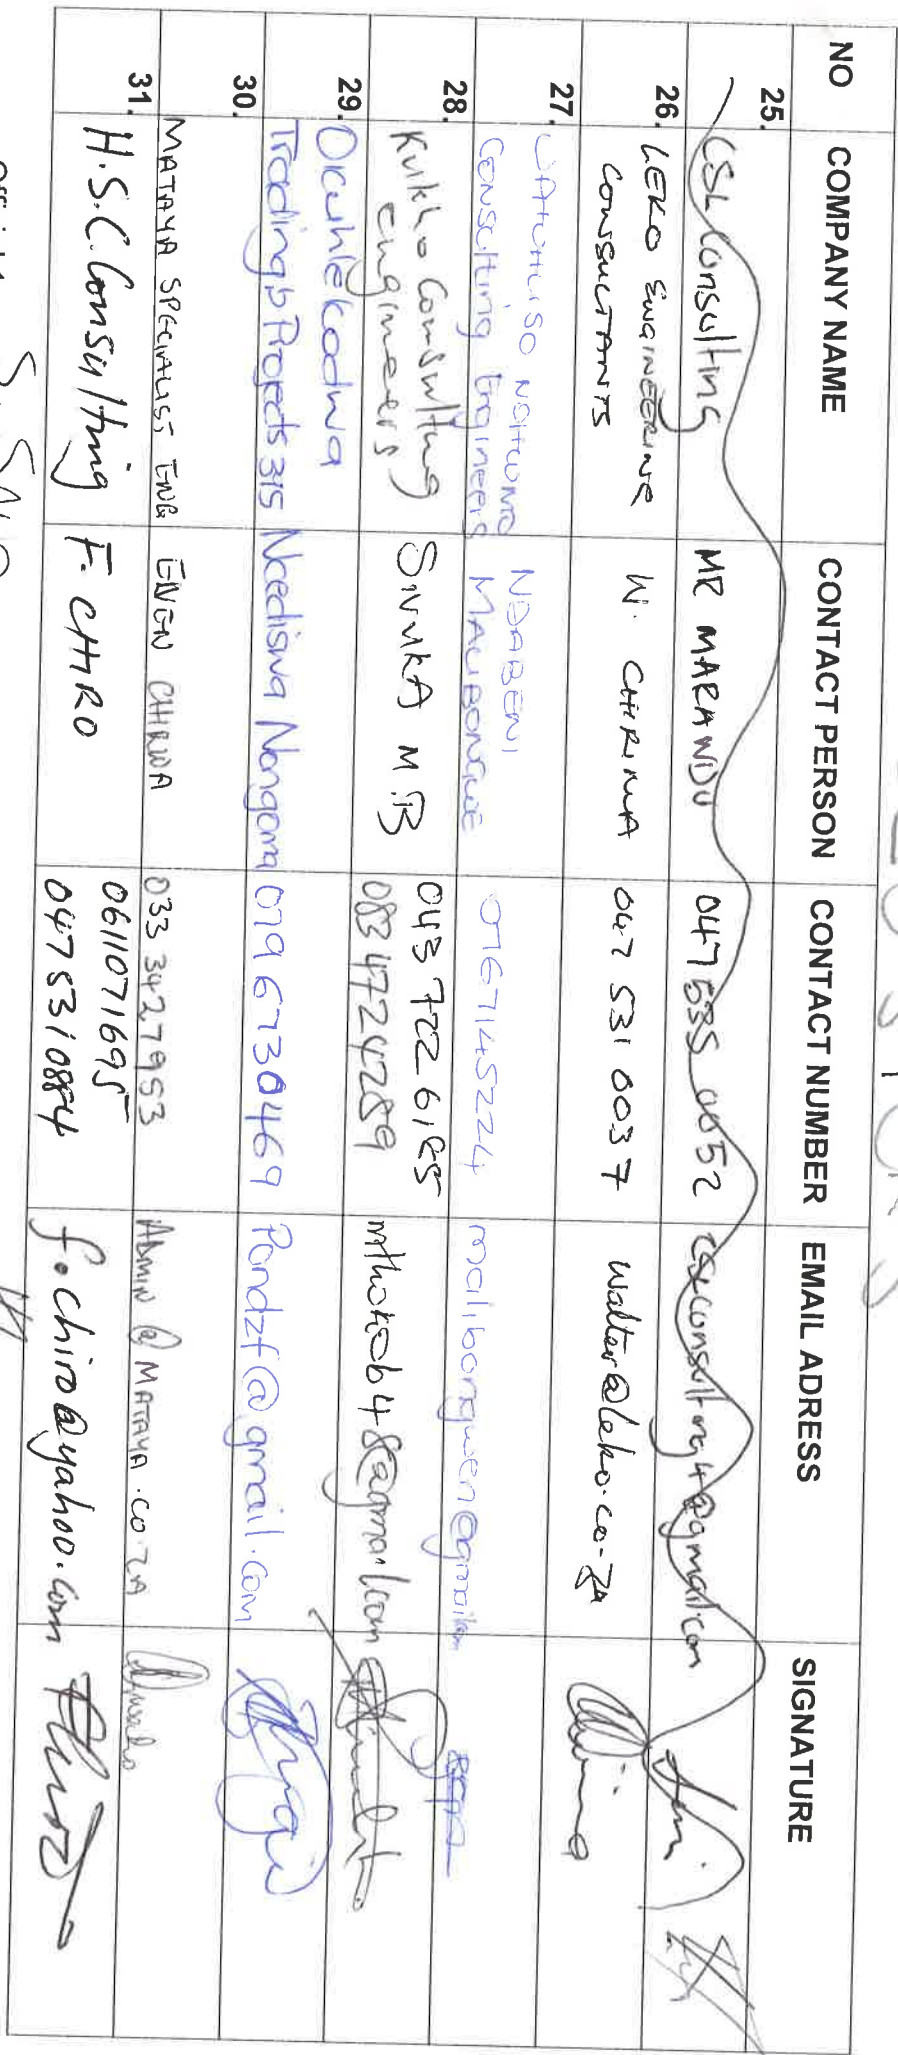 NO COMPANY NAME CONTACT PERSON CONTACT NUMBER EMAIL ADRESS SIGNATURE
25. CSL Consulting MR MARANDU 047 535 0052 cslconsulting4@gmail.com
26. LEKO ENGINEERING CONSULTANTS W. CHIRWA 047 531 0037 walter@leko.co.za
27. NDABENI MALIBONGWE 0767145224 malibongwen@gmail.com
Consulting Engineers
28. Kukho Consulting engineers SIVUKA M.B 043 722 6185
083 4724289 mthokob48@gmail.com
29. Oкuhlekodwa
Trading & Projects 315 Ncediswa Nongoma 079 6730469 Pondzf@gmail.com
30. MATAYA SPECIALIST ENG ENEN CHIRWA 033 342 7953 ADMIN @ MATAYA.CO.ZA
31. H.S.C. Consulting F. CHIRO 0611071695
0475310884 f.chiro@yahoo.com